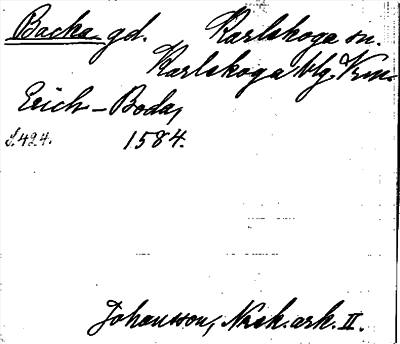 Backa gd. Karlskoga sn.
Karlskoga blg. Vrm.
Erich - Boda,
S. 424. 1584.
Johansson, Norsk. ark. II.